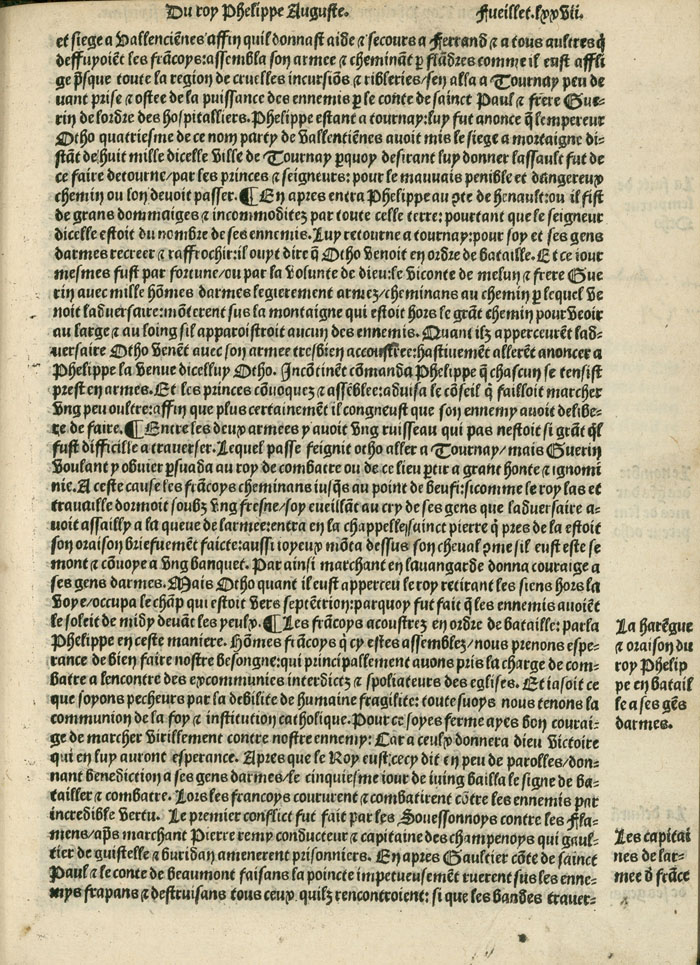 Du roy Phelippe Auguste. Fueillet.lxxvii.
et siege a Vallenciēnes affin quil donnast aide & secours a Ferrand & a tous aultres q̄
deffuyoiēt les frācoys:assembla son armee & chemināt p̄ flādres comme il eust affli
ge p̄sque toute la region de cruelles incursiōs & ribleries/sen alla a Tournay peu de
uant prise & ostee de la puissance des ennemis p̄ le conte de sainct Paul & frere Gue-
rin de lordre des hospitalliers. Phelippe estant a tournay:luy fut anonce q̄ lempereur
Otho quatriesme de ce nom party de Vallentiēnes auoit mis le siege a mortaigne di-
stāt de huit mille dicelle ville de Tournay pquoy desirant luy donner lassault fut de
ce faire detourne/par les princes & seigneurs: pour le mauuais penible et dangereux
chemin ou lon deuoit passer. ¶ En apres entra Phelippe au ꝯte de henault:ou il fist
de grans dommaiges & incommoditez par toute celle terre: pourtant que le seigneur
dicelle estoit du nombre de ses ennemis. Luy retourne a tournay:pour soy et ses gens
darmes recreer & raffrochir:il ouyt dire q̄ Otho venoit en ordre de bataille. Et ce iour
mesmes fust par fortune/ou par la volunte de dieu:le viconte de melun & frere Gue
rin auec mille hōmes darmes legierement armez/cheminans au chemin p̄ lequel ve
noit laduersaire:mōterent sus la montaigne qui estoit hors le grāt chemin pour veoir
au large & au loing sil apparoistroit aucun des ennemis. Quant ilz apperceurēt lad-
uersaire Otho venēt auec son armee tresbien accoustree:hastiuemēt allerēt anoncer a
Phelippe la venue dicelluy Otho. Incōtinēt cōmanda Phelippe q̄ chascun se tensist
prest en armes. Et les princes cōuoquez & assēblee:aduisa le cōseil q̄ failloit marcher
vng peu oultre:affin que plus certainemēt il congneust que son ennemy auoit delibe-
re de faire. ¶ Entre les deux armees y auoit vng ruisseau qui pas nestoit si grāt q̄l
fust difficille a trauerser. Lequel passe feignit otho aller a Tournay/mais Guerin
voulant y obuier p̄suada au roy de combatre ou de ce lieu p̄tir a grant honte & ignomi
nie. A ceste cause les frācoys cheminans iusq̄s au point de beufi:sicomme le roy las et
trauaille dormoit soubz vng fresne/soy eueillāt au cry de ses gens que laduersaire a-
uoit assailly a la queue de larmee:entra en la chappelle sainct pierre q̄ pres de la estoit
son oraison briefuement faicte:aussi ioyeux mōta dessus son cheual ꝯme sil eust este se
mont & cōuoye a vng banquet. Par ainsi marchant en lauangarde donna couraige a
ses gens darmes. Mais Otho quant il eust apperceu le roy retirant les siens hors la
voye/occupa le chāp qui estoit vers septētrion:parquoy fut fait q̄ les ennemis auoiēt
le soleil de midy deuāt les yeulx. ¶ Les frācoys acoustrez en ordre de bataille: parla
Phelippe en ceste maniere. Hōmes frācoys q̄ cy estes assemblez/nous prenons espe-
rance de bien faire nostre besongne:qui principallement auons pris la charge de com-
batre a lencontre des excommunies interdictz & spoliateurs des eglises. Et iasoit ce
que soyons pecheurs par la debilite de humaine fragilite: toutesuoys nous tenons la
communion de la foy & institution catholique. Pour ce soyes ferme ayes bon courai-
ge de marcher virillement contre nostre ennemy: Car a ceulx donnera dieu victoire
qui en luy auront esperance. Apres que le Roy eust cecy dit en peu de parolles/don-
nant benediction a ses gens darmes/le cinquiesme iour de iuing bailla le signe de ba-
tailler & combatre. Lors les francoys coururent & combatirent cōtre les ennemis par
incredible vertu. Le premier conflict fut fait par les Souessonnoys contre les Fla-
mens/ap̄s marchant Pierre remy conducteur & capitaine des champenoys qui gaul-
tier de guistelle & buridan amenerent prisonniers. En apres Gaultier cōte de sainct
Paul & le conte de beaumont faisans la poincte impetueusemēt ruerent sus les enne-
mys frapans & destruisans tous ceux quilz rencontroient: si que les bandes trauer-
La harēgue
& oraison du
roy Phelip
pe en batail
le a ses gēs
darmes.
Les capitai
nes de lar-
mee d̄ frāce